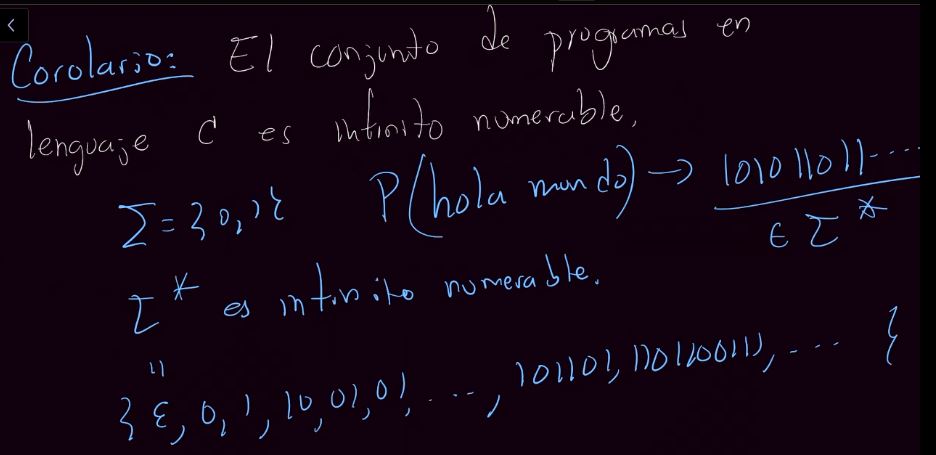 Corolario: El conjunto de programas en
lenguaje C es infinito numerable.
Σ = {0,1} P(hola mundo) → 101011011....
∈ Σ*
Σ* es infinito numerable.
"
{ε, 0, 1, 10, 01, 01, ...., 101101, 110110011, .... }